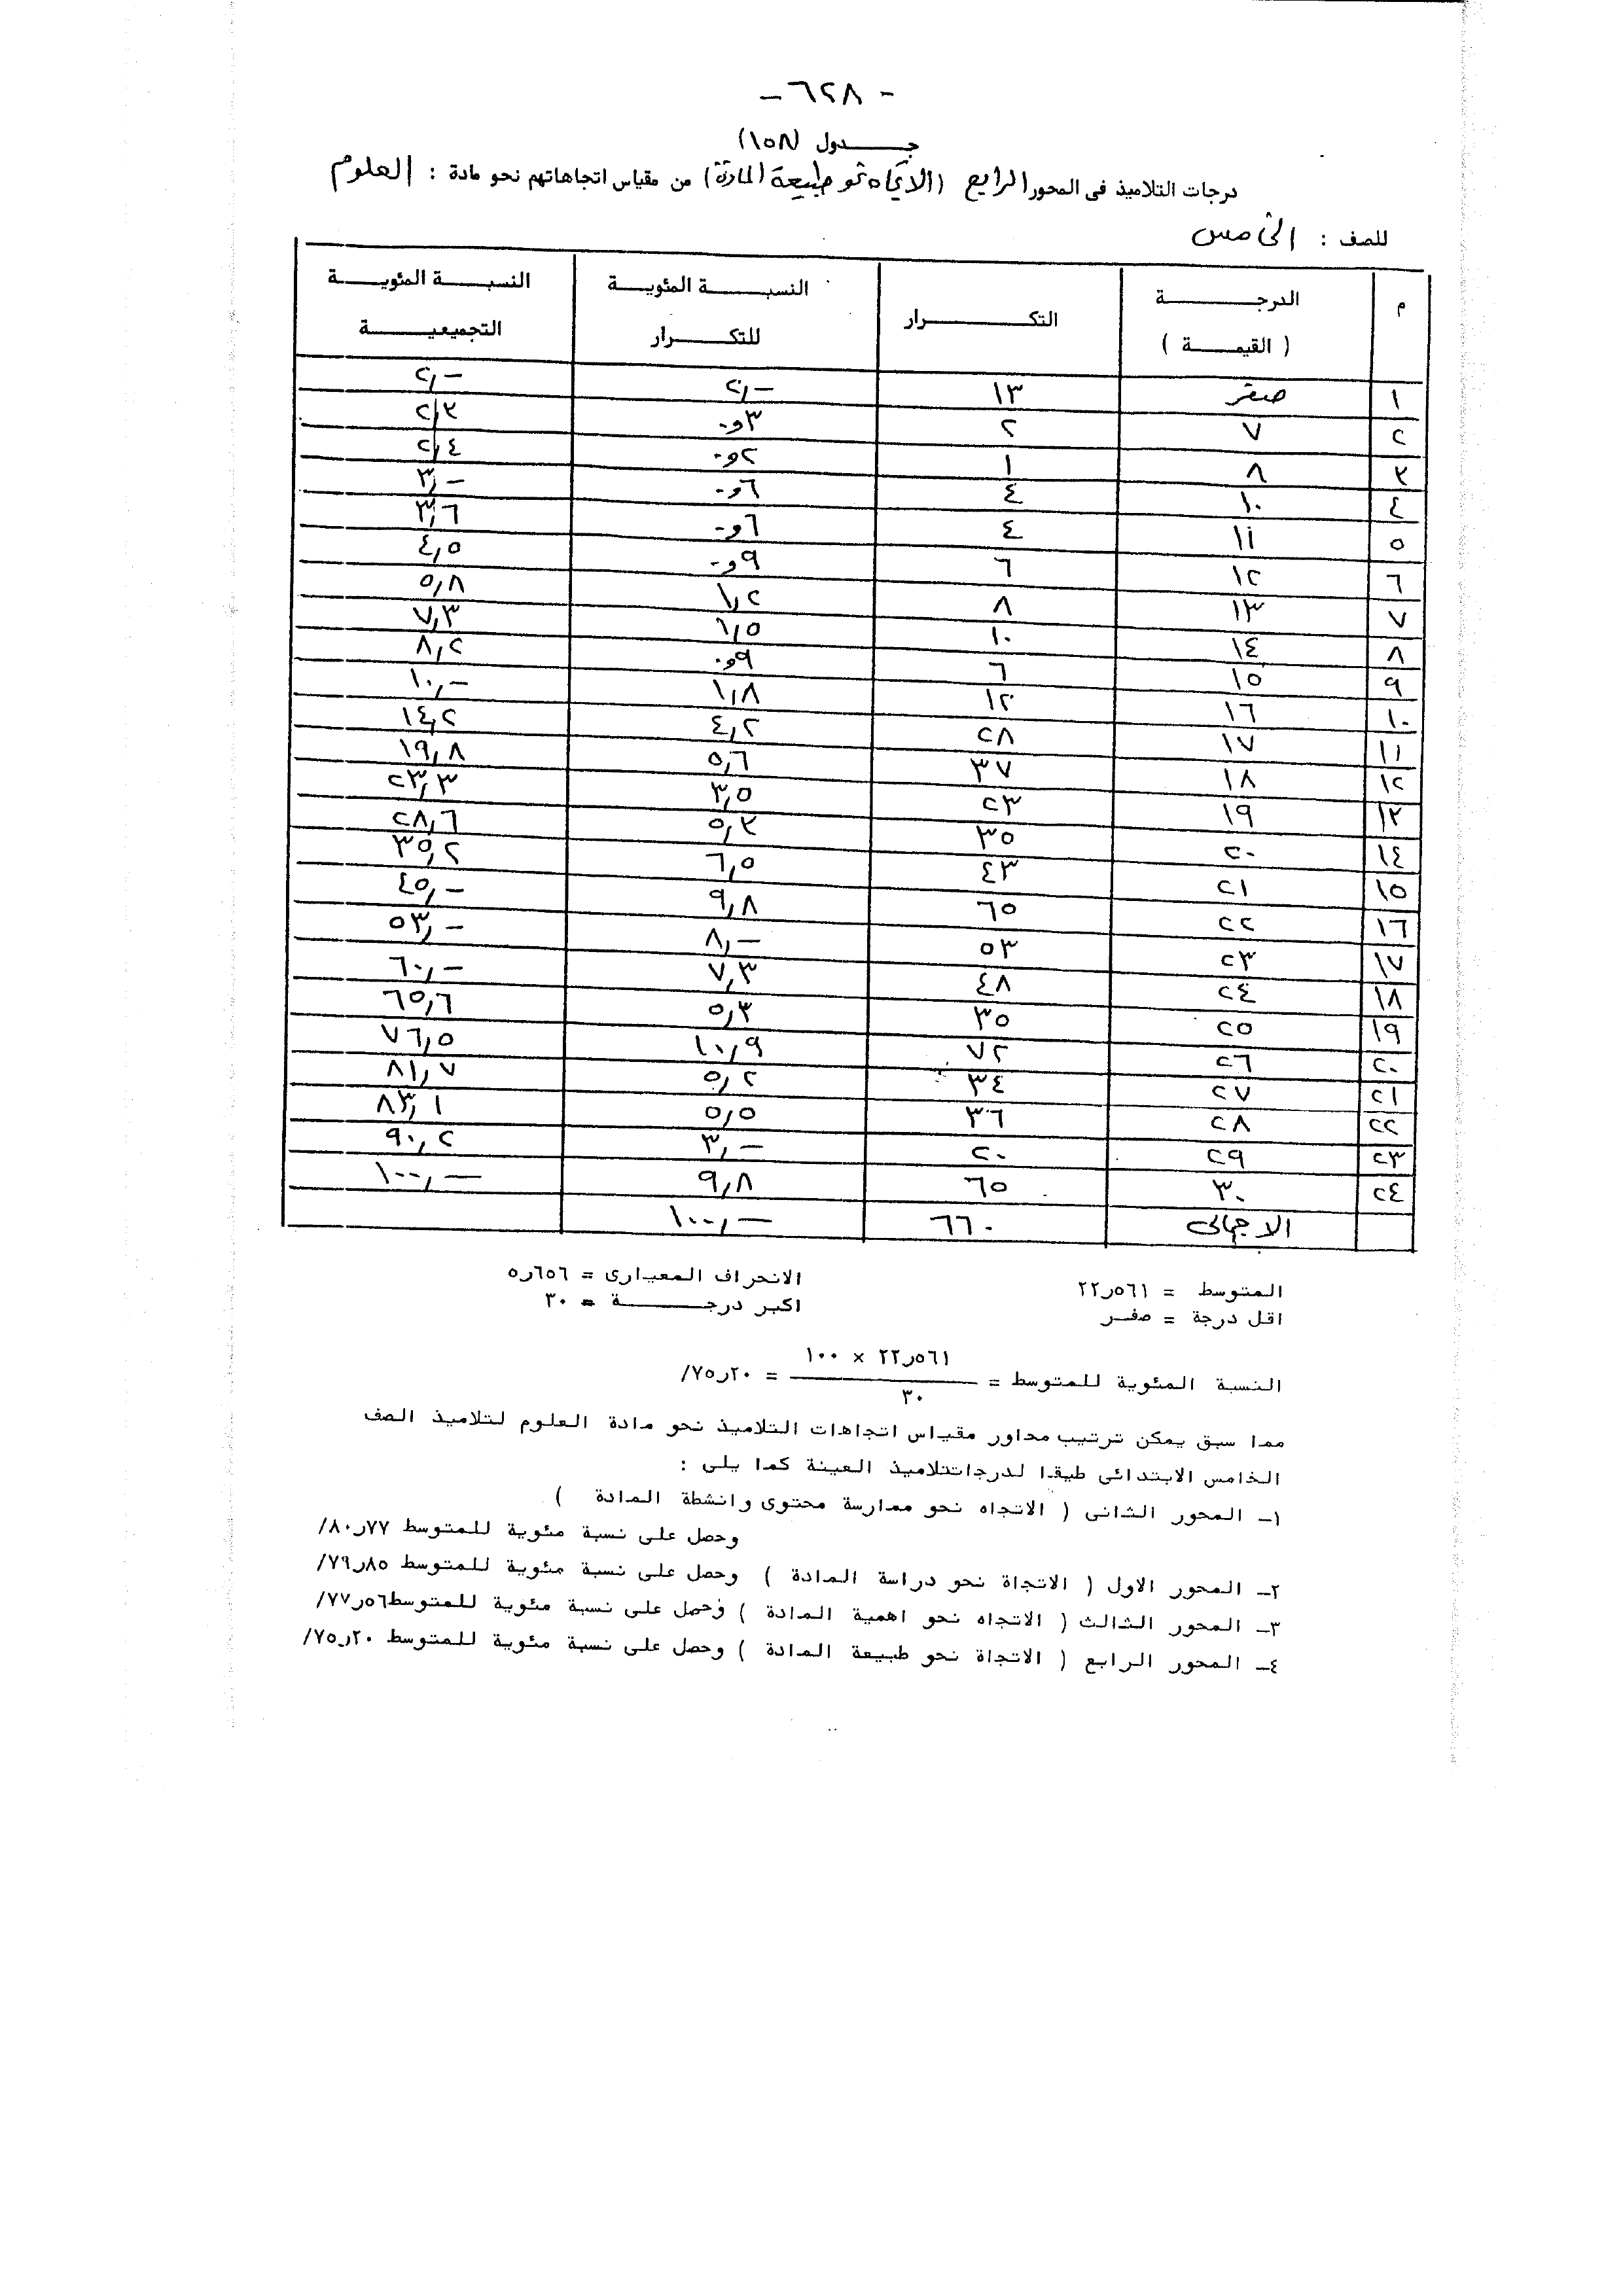 - ٦٢٨ -
جــدول (١٥٨)
درجات التلاميذ فى المحور الرابع (الاتجاه نحو طبيعة المادة) من مقياس اتجاهاتهم نحو مادة : العلوم
للصف : الخامس
م الدرجــة (القيمــة) التكــرار النسبــة المئويــة للتكــرار النسبــة المئويــة التجميعيــة
١ صفر ١٣ ٢,- ٢,-
٢ ٧ ٢ ٣و٠ ٢,٣
٣ ٨ ١ ٢و٠ ٢,٤
٤ ١٠ ٤ ٦و٠ ٣,-
٥ ١١ ٤ ٦و٠ ٣,٦
٦ ١٢ ٦ ٩و٠ ٤,٥
٧ ١٣ ٨ ١,٢ ٥,٨
٨ ١٤ ١٠ ١,٥ ٧,٣
٩ ١٥ ٦ ٩و٠ ٨,٢
١٠ ١٦ ١٢ ١,٨ ١٠,-
١١ ١٧ ٢٨ ٤,٢ ١٤,٢
١٢ ١٨ ٣٧ ٥,٦ ١٩,٨
١٣ ١٩ ٢٣ ٣,٥ ٢٣,٣
١٤ ٢٠ ٣٥ ٥,٣ ٢٨,٦
١٥ ٢١ ٤٣ ٦,٥ ٣٥,٢
١٦ ٢٢ ٦٥ ٩,٨ ٤٥,-
١٧ ٢٣ ٥٣ ٨,- ٥٣,-
١٨ ٢٤ ٤٨ ٧,٣ ٦٠,-
١٩ ٢٥ ٣٥ ٥,٣ ٦٥,٦
٢٠ ٢٦ ٧٢ ١٠,٩ ٧٦,٥
٢١ ٢٧ ٣٤ ٥,٢ ٨١,٧
٢٢ ٢٨ ٣٦ ٥,٥ ٨٣,١
٢٣ ٢٩ ٢٠ ٣,- ٩٠,٢
٢٤ ٣٠ ٦٥ ٩,٨ ١٠٠,-
الاجمالى ٦٦٠ ١٠٠,-
المتوسط = ٥٦١ر٢٢ الانحراف المعيارى = ٦٥٦ر٥
اقل درجة = صفــر اكبر درجــة = ٣٠
٥٦١ر٢٢ × ١٠٠
النسبة المئوية للمتوسط = ــــــــ = ٢٠ر٧٥/
٣٠
مما سبق يمكن ترتيب محاور مقياس اتجاهات التلاميذ نحو مادة العلوم لتلاميذ الصف
الخامس الابتدائى طبقا لدرجاتتلاميذ العينة كما يلى :
١ـ المحور الثانى ( الاتجاه نحو ممارسة محتوى وانشطة المادة )
وحصل على نسبة مئوية للمتوسط ٧٧ر٨٠/
٢ـ المحور الاول ( الاتجاة نحو دراسة المادة ) وحصل على نسبة مئوية للمتوسط ٨٥ر٧٩/
٣ـ المحور الثالث ( الاتجاه نحو اهمية المادة ) وحصل على نسبة مئوية للمتوسط٥٦ر٧٧/
٤ـ المحور الرابع ( الاتجاة نحو طبيعة المادة ) وحصل على نسبة مئوية للمتوسط ٢٠ر٧٥/